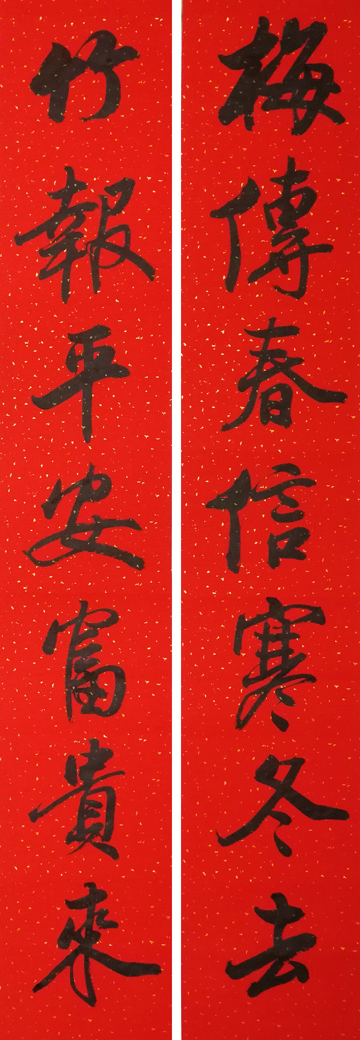 梅傳春信寒冬去
竹報平安富貴來